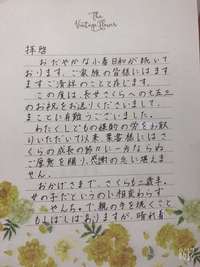 The
Vintage Flower
拝啓
おだやかな小春日和が続いて
おります。ご家族の皆様にはます
ますご清祥のことと存じます。
この度は、長女さくらへの七五三
のお祝をお送りくださいまして、
まことに有難うございました。
わたくしどもの媒酌の労をお取
りいただいて以来、葉客様にはさ
くらの成長の節々に一方ならぬ
ご厚意を賜り、感謝の念に堪えま
せん。
おかげさまで、さくらも三歳。
女の子だというのに相変わらず
やんちゃで、親の手を焼くこと
もしばしばありますが、晴れ着